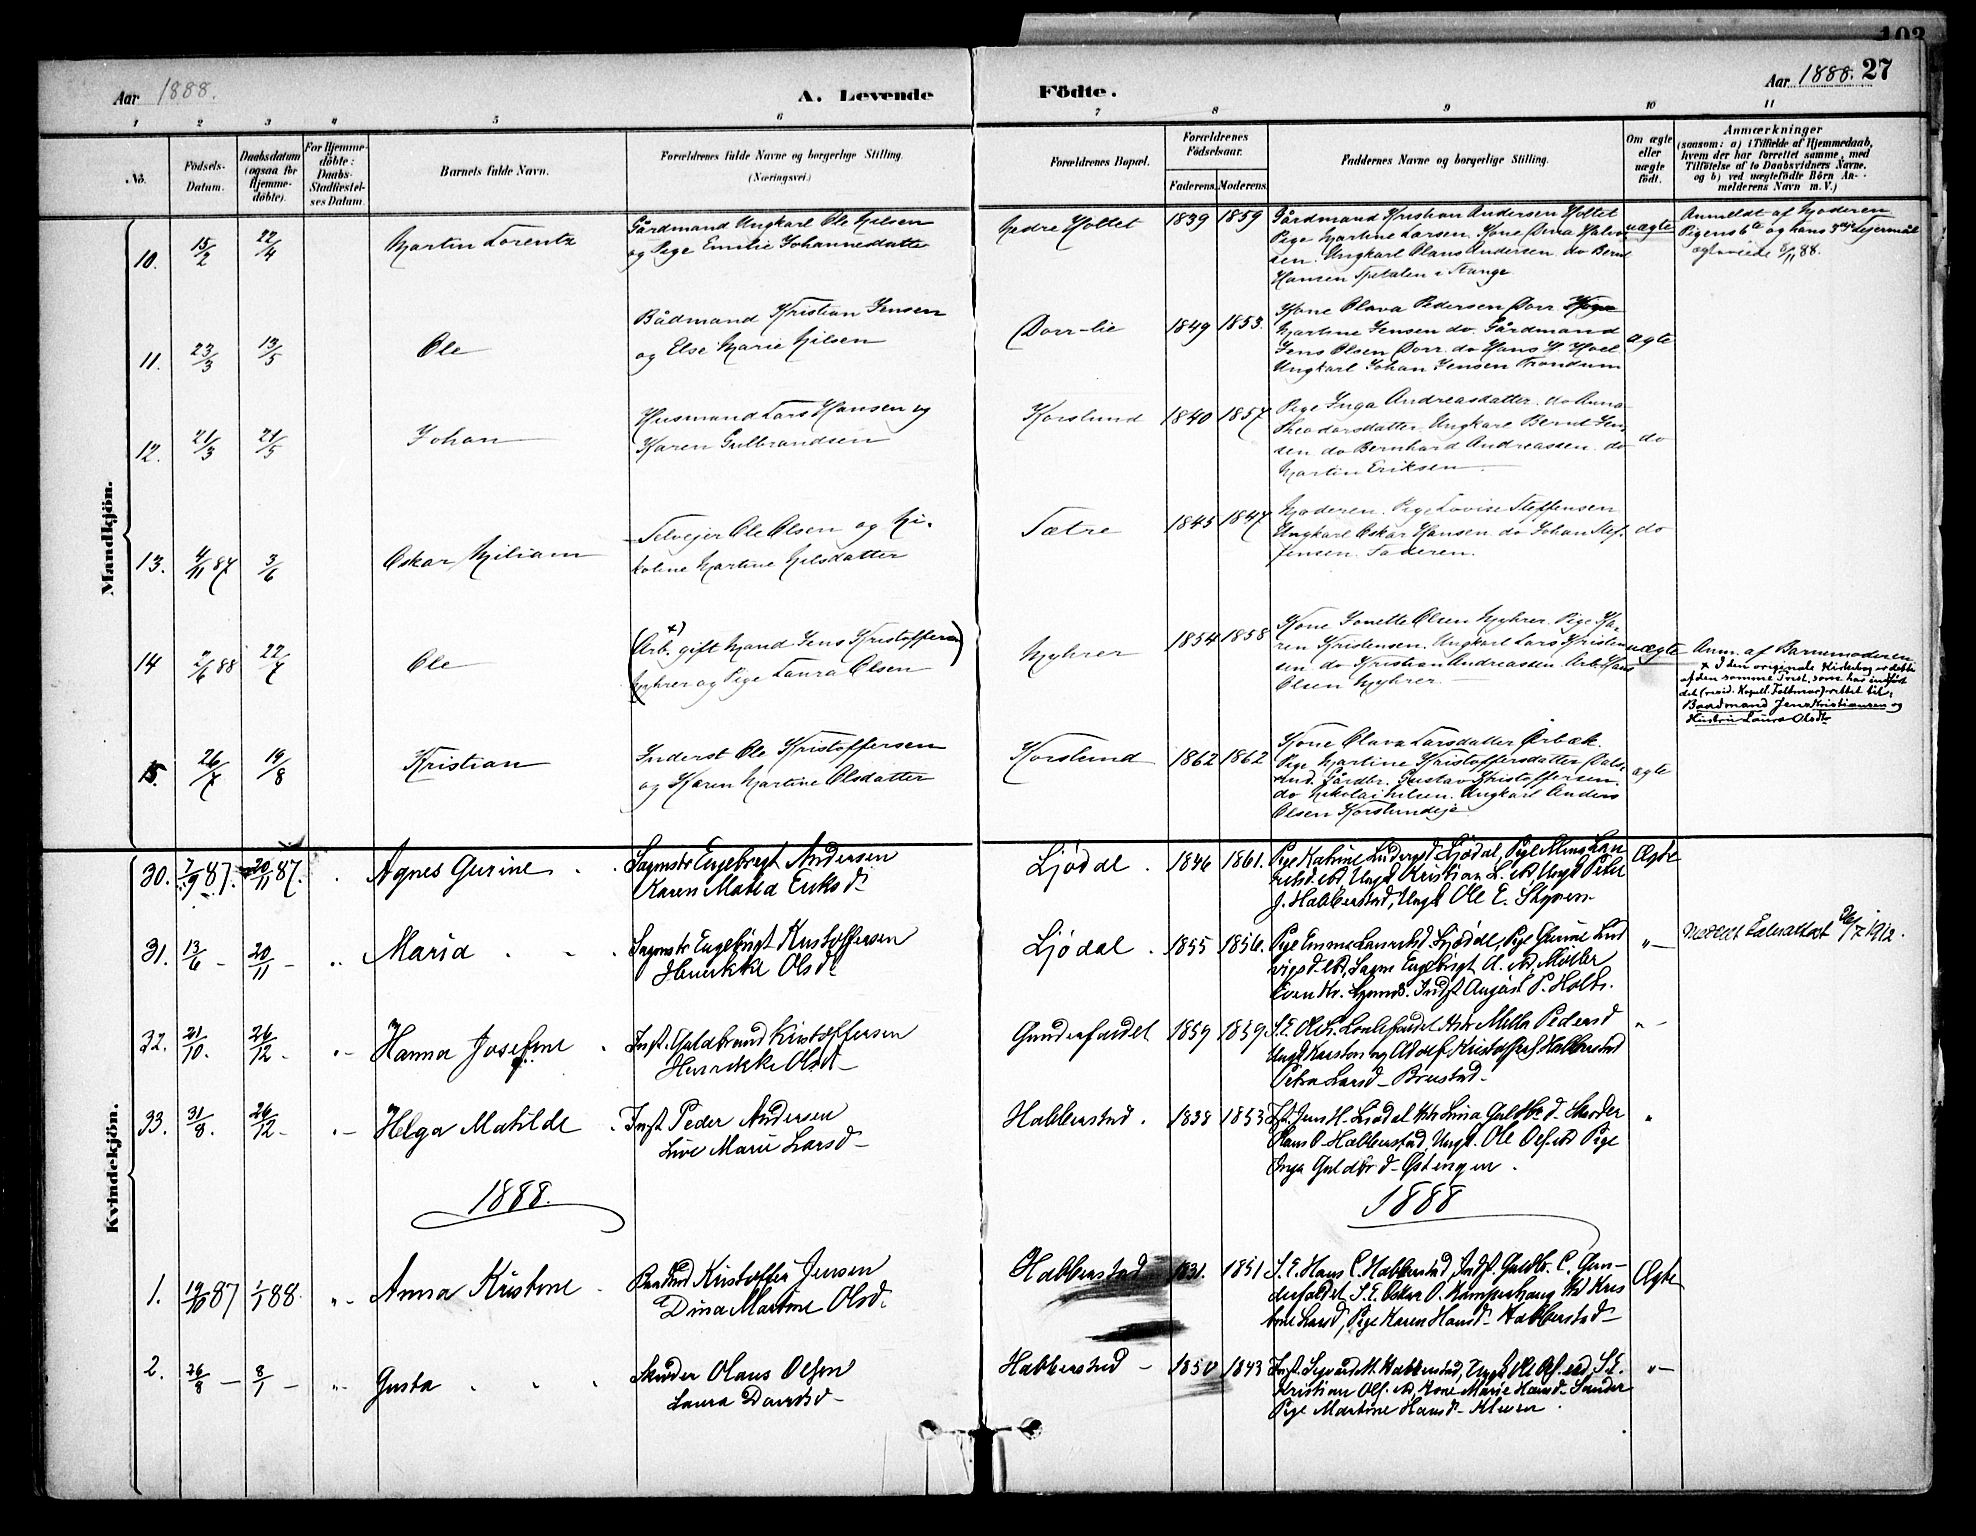 103
Aar 1888.
A. Levende Fødte.
Aar 1888. 27
1 2 3 4 5 6 7 8 9 10 11
No.
Fødsels-Datum.
Daabsdatum (ogsaa for Hjemme-døbte).
For Hjemme-døbte: Daabs-Stadfæstel-ses Datum.
Barnets fulde Navn.
Forældrenes fulde Navne og borgerlige Stilling. (Næringsvei.)
Forældrenes Bopæl.
Forældrenes Fødselsaar.
Faderens. Moderens.
Faddernes Navne og borgerlige Stilling.
Om ægte eller uægte født.
Anmærkninger
(saasom: a) i Tilfælde af Hjemmedaab,
hvem der har forrettet samme, med
Tilføielse af to Daabsvidners Navne,
og b) ved uægtefødte Børn An-
melderens Navn m. V.)
Mandkjøn.
10. 15/2 22/4 Martin Lorentz
Gårdmand Ungkarl Ole Nilsen
og Pige Emilie Johannesdatter
Nedre Holtet 1839 1859
Gårdmand Kristian Andersen Holtet
Pige Martine Larsen. Kone Dina Halvor
sen. Ungkarl Olaus Andersen do Bernt
Hansen Spetalen i Stange
uægte
Anmeldt af Moderen
Pigens 6te og hans 3die Leiermål
ægteviede 5/11 88.
11. 23/3 13/5 Ole
Bådmand Kristian Jensen
og Else Marie Nilsen
Dorr-lie 1849 1853.
Kone Olava Pedersen Dorr
Martine Jensen do. Gårdmand
Jens Olsen Dorr. do Hans H. Hoel
Ungkarl Johan Jensen Trondum
ægte
12. 21/3 21/5 Johan
Husmand Lars Hansen og
Karen Gulbrandsen
Korslund 1840 1857
Pige Inga Andreasdatter. do Anna
Theodorsdatter. Ungkarl Bernt Jen-
sen do Bernhard Andreassen. do
Martin Eriksen
do
13. 4/11 87 3/6 Oskar Miliam
Selvejer Ole Olsen og Ni-
koline Martine Nilsdatter
Sætre 1845 1847
Moderen. Pige Lovise Steffensen
Ungkarl Oskar Hansen do Johan Stef-
fensen. Faderen.
do
14 2/6 88 22/7 Ole
(Arb. x) gift Mand Jens Kristoffersen
Myhrer og Pige Laura Olsen)
Myhrer 1854 1858
Kone Jonette Olsen Myhrer. Pige Ka-
ren Kristensen. Ungkarl Lars Kristen
sen do Kristian Andreassen Arb. Hans
Olsen Myhrer.
uægte
Anm. af Barnemoderen
x I den originale Kirkebog er dette
af den samme Prest, som har indført
det (resid. Kapell. Feltman) rettet til:
Baardmand Jens Kristiansen og
Hustru Laura Olsdtr
15. 26/7 19/8 Kristian
Inderst Ole Kristoffersen
og Karen Martine Olsdatter
Korslund 1862 1862
Kone Olava Larsdatter Ørbæk.
Pige Martine Kristoffersdatter
Gårdbr. Gustav Kristoffersen
do Nikolai Nilsen. Ungkarl Anders
Olsen Korslundeje
ægte
Kvindekjøn.
30. 7/9 87. 20/11 87. Agnes Gurine
Sagmstr Engebregt Andersen
Karen Matea Eriksd.
Ljødal. 1846 1861.
Pige Katrine Ludvigsd Ljødal, Pige Mina Lau
ritsd. ibd, Ungk Kristian L. ibd, Ungk Peter
J. Habberstad, Ungk Ole E. Skyrsen
Ægte
31. 13/6 - 20/11 - Maria
Sagmstr Engebrigt Kristoffersen
Henrikke Olsd.
Ljødal. 1855 1856.
Pige Emma Lauritsd Ljødal, Pige Gurine Lud
vigsd. ibd, Sagm Engebrigt A. ibd, Møller
Even Kr. Indst August P. Holts.
"-
Meldt 26/7 1912.
32. 21/10. 26/12 - Hanna Josefine
Inst. Guldbrand Kristoffersen
Henrikke Olsd-
Gunderfaldet 1859 1859.
S.E. Ole Kr Milla Pedersd
Ungk Karsten og Adolf Kristoffers Habberstad
Petra Larsd- Brustad-
"-
33. 31/8. 26/12 - Helga Matilde
Inst Peder Andersen
Live Marie Larsd-
Habberstad. 1838 1853
Inst. Jens H. Ljødal Kr Lina Guldbrd-
Hans O. Habberstad, Ungk. Ole Ols. ibd Pige
Inga Guldbrd- Østengen.
"
1888. 1888
1. 19/10 87 1/1 88 Anna Kristine
Kristoffer Jensen
Dina Martine Olsd.
Habberstad 1831. 1851
S.E. Hans C. Habberstad, Indst. Guldbr. C. Gun-
derfaldet. S.E. Oskar O. Kamperhaug Kr Kris
tine Larsd, Pige Karen Hansd- Habberstad-
Ægte
2. 26/8 - 8/1 - Gusta
Skræder Olaus Olsen
Laura Davidsd-
Habberstad - 1850 1843
Inst. Sigvard M. Habberstad, Ungk Ole Ols. ibd, S.E.
Kristian Ols. ibd, Kone Marie Hansd-
Pige Martine Hansd-
"-